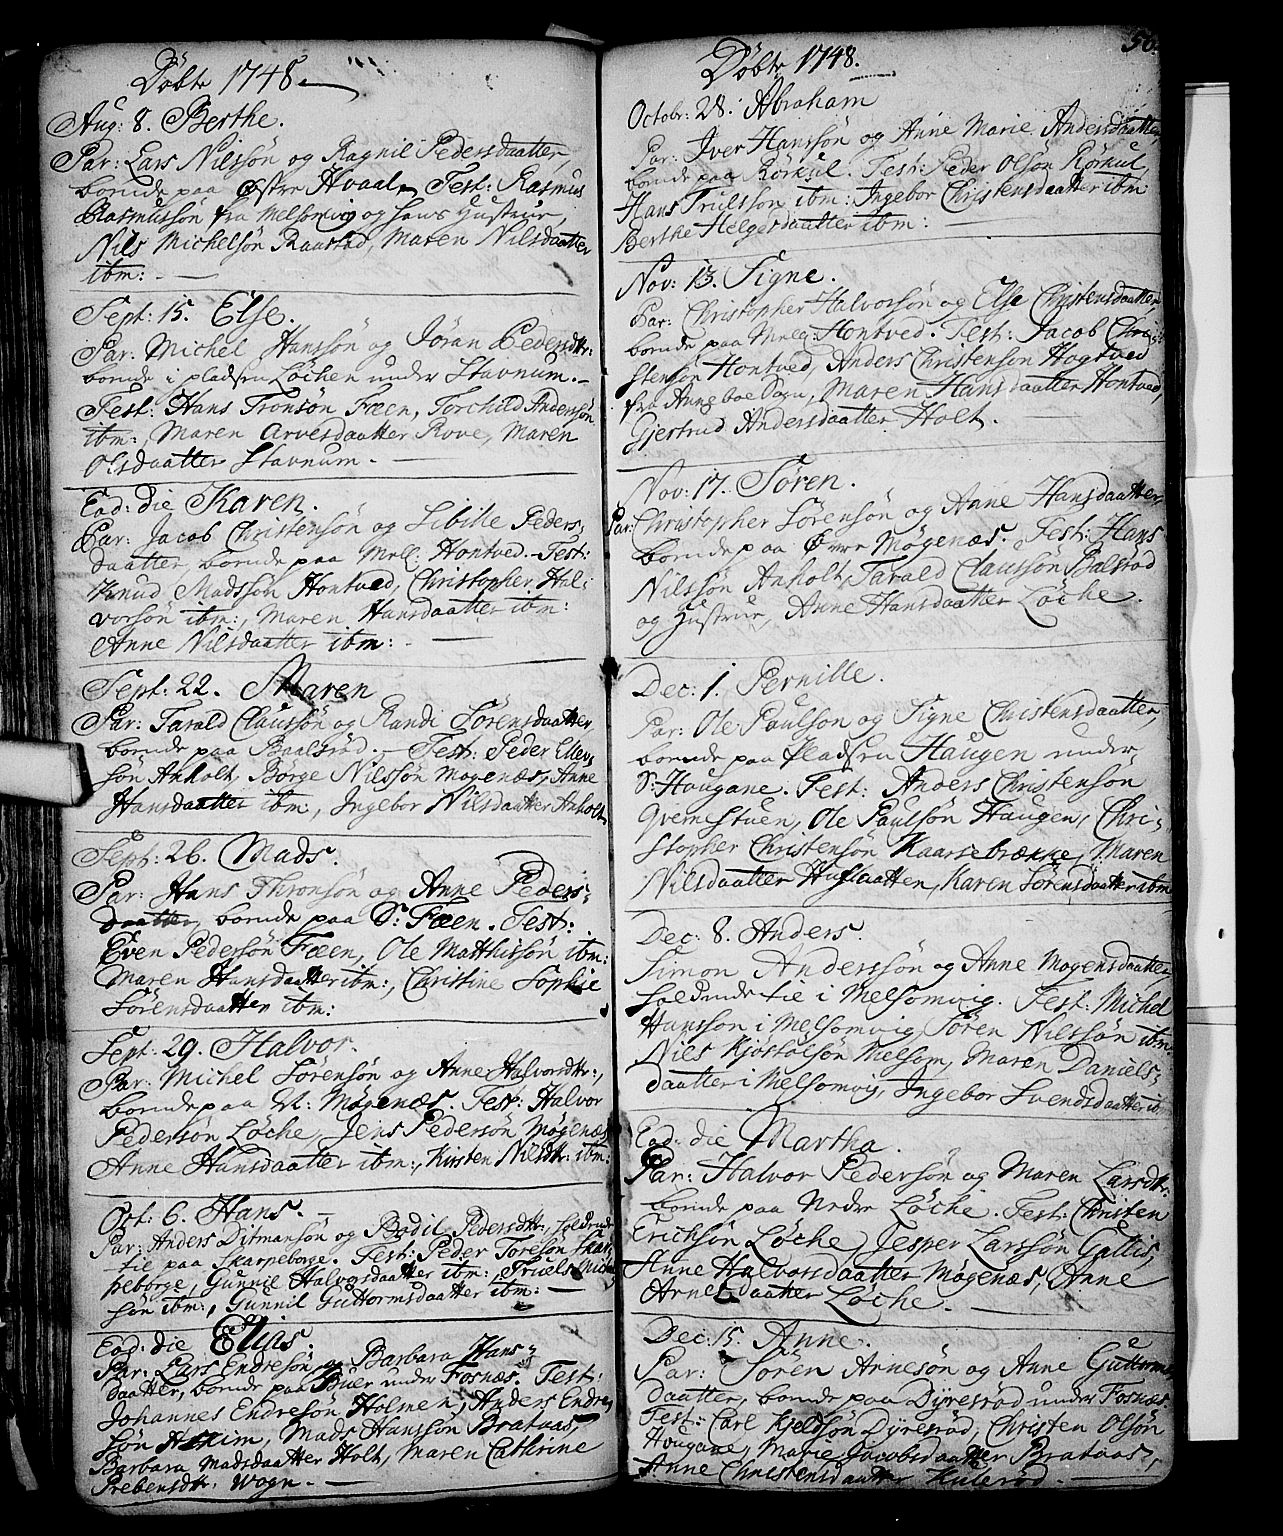 Döbte 1748.
Aug: 8. Berthe.
Par: Lars Nilssön og Ragnil Pedersdaatter,
boende paa Østre Hvaal. Test: Rasmus
Rasmussön fra Melsomvig og hans Hustrue,
Nils Michelsön Raastad, Maren Nilsdaatter
ibm:
Sept: 15. Else.
Par: Michel Hanssön og Jöran Pedersdtr:
boende i pladsen Löchen under Stavnum.
Test: Hans Tronsön Fæen, Torchild Andersön
ibm:, Maren Arvesdaatter Rove, Maren
Olsdaatter Stavnum.
Eod: die Karen.
Par: Jacob Christensön og Libike Peders-
daatter, boende paa Mell: Hontved. Test:
Knud Madssön Hontved, Christopher Hal-
vorsön ibm:, Maren Hansdaatter ibm:
Anne Nilsdaatter ibm:
Sept: 22. Maren
Par: Tarald Claussön og Randi Sörensdaatter,
boende paa Baalsröd. Test: Peder Ellev-
sön Anholt, Börge Nilssön Mogenæs, Anne
Hansdaatter ibm, Ingebor Nilsdaatter Anholt
Sept: 26. Mads.
Par: Hans Thronsön og Anne Peders-
daatter, boende paa S: Fæen. Test:
Even Pedersön Fæen, Ole Matthissön ibm:
Maren Hansdaatter ibm:, Christine Sophie
Sörensdaatter ibm:
Sept: 29. Halvor.
Par: Michel Sörensön og Anne Halvorsdtr:,
boende paa N: Mögenæs. Test: Halvor
Pedersön Löche, Jens Pedersön Mögenæs
Anne Hansdaatter ibm:, Kirsten Nilsdtr: ibm:
Oct: 6. Hans.
Par: Anders Ditmansön og Bodil Pedersdtr:,
tie paa Skarpeborge. Test: Peder Toresön Skar-
peborge, Gunnil Halvorsdaatter ibm: Truels
sön ibm:, Gunnil Guttormsdaatter ibm:
Eod: die Elias.
Par: Lars Endresön og Barbara Hans-
daatter, boende paa Buer under Fosnæs. Test:
Johannes Endresön Holmen, Anders Endre-
sön Askim, Mads Hanssön Brataas,
Barbara Madsdaatter Holt, Maren Cathrine
Prebensdtr: Wogn.
50.
Döbte 1748.
Octobr: 28. Abraham
Par: Iver Hanssön og Anne Marie Andersdaatter,
boende paa Rörkul. Test: Peder Olsön Rörkul,
Hans Trulsson ibm: Ingebor Christensdaatter ibm:
Berthe Helgesdaatter ibm:
Nov: 13. Signe.
Par: Christopher Halvorsön og Else Christensdaatter,
boende paa Melg: Hontved. Test: Jacob Chri-
stensön Hontved, Anders Christensön Hogtved
fra Sogn, Maren Hansdaatter Hontved,
Gjertrud Andersdaatter Holt.
Nov: 17. Sören.
Par: Christopher Sörensön og Anne Hansdaatter
boende paa Øvre Mögenæs. Test: Hans
Nilssön Anholt, Tarald Claussön Balsröd
og Hustrue, Anne Hansdaatter Löche.
Dec: 1. Pernille.
Par: Ole Paulsön og Signe Christensdaatter,
boende paa pladsen Haugen under
S: Hougane. Test: Anders Christensön
Qvernestuen, Ole Paulsön Haugen, Chri-
stopher Christensön Kaarsebrække, Maren
Nilsdaatter Huslaatten, Karen Sörensdaatter ibm
Dec: 8. Anders.
Simon Anderssön og Anne Mogensdaatter,
tie i Melsomvig. Test: Michel
Hansson i Melsomvig, Sören Nilssön ibm:
Nils Kjöstolsön Melsom, Maren Daniels-
daatter i Melsomvig, Ingebor Svendsdaatter ibm
Eod: die Martha.
Par: Halvor Pedersön og Maren Larsdtr:
boende paa Nedre Löche. Test: Christen
Erichsön Löche, Jesper Larssön Gallis,
Anne Halvorsdaatter Mögenæs, Anne
Arnesdaatter Löche.
Dec: 15. Anne.
Par: Sören Arnesön og Anne Guttorms-
daatter, boende paa Dyresrod under Fosnæs.
Test: Carl Kjeldsön Dyresröd, Christen Olsön
Hougane, Marie Jacobsdaatter Brataas,
Anne Christensdaatter Kuleröd.